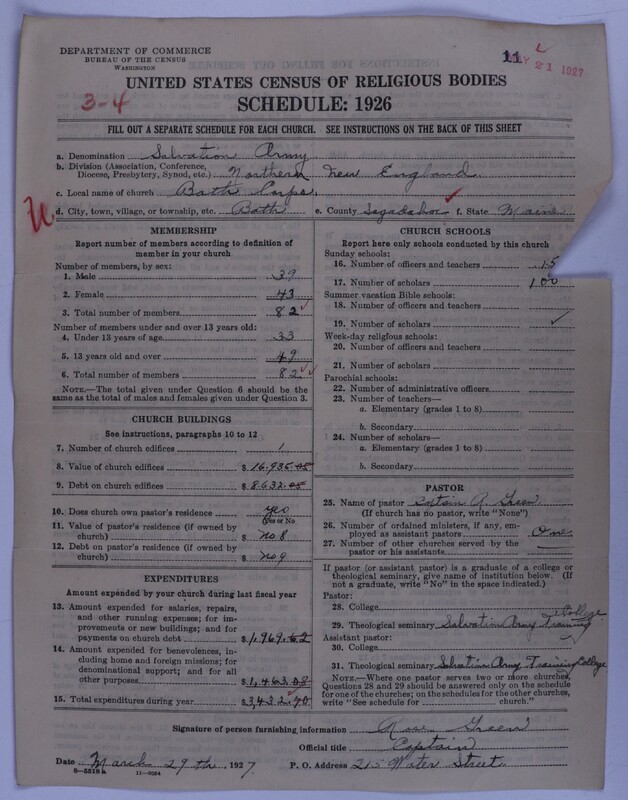 DEPARTMENT OF COMMERCE
BUREAU OF THE CENSUS
WASHINGTON
21 1927
3-4
UNITED STATES CENSUS OF RELIGIOUS BODIES
SCHEDULE: 1926
FILL OUT A SEPARATE SCHEDULE FOR EACH CHURCH. SEE INSTRUCTIONS ON THE BACK OF THIS SHEET
a. Denomination Salvation Army
b. Division (Association, Conference,
Diocese, Presbytery, Synod, etc.) Northern New England
c. Local name of church Bath Corps
d. City, town, village, or township, etc. Bath e. County Sagadahoc f. State Maine
MEMBERSHIP
Report number of members according to definition of
member in your church
Number of members, by sex:
1. Male 39
2. Female 43
3. Total number of members 82
Number of members under and over 13 years old:
4. Under 13 years of age 33
5. 13 years old and over 49
6. Total number of members 82
NOTE.—The total given under Question 6 should be the
same as the total of males and females given under Question 3.
CHURCH BUILDINGS
See instructions, paragraphs 10 to 12
7. Number of church edifices 1
8. Value of church edifices $ 16,935.05
9. Debt on church edifices $ 8632.05
10. Does church own pastor's residence? yes
(Yes or No)
11. Value of pastor's residence (if owned by
church) $ no 8
12. Debt on pastor's residence (if owned by
church) $ no 9
EXPENDITURES
Amount expended by your church during last fiscal year
13. Amount expended for salaries, repairs,
and other running expenses; for im-
provements or new buildings; and for
payments on church debt $ 1,969.62
14. Amount expended for benevolences, in-
cluding home and foreign missions; for
denominational support; and for all
other purposes $ 1,463.08
15. Total expenditures during year $ 3,432.70
CHURCH SCHOOLS
Report here only schools conducted by this church
Sunday schools:
16. Number of officers and teachers 15
17. Number of scholars 100
Summer vacation Bible schools:
18. Number of officers and teachers
19. Number of scholars
Week-day religious schools:
20. Number of officers and teachers
21. Number of scholars
Parochial schools:
22. Number of administrative officers
23. Number of teachers—
a. Elementary (grades 1 to 8)
b. Secondary
24. Number of scholars—
a. Elementary (grades 1 to 8)
b. Secondary
PASTOR
25. Name of pastor Captain R. Green
(If church has no pastor, write "None")
26. Number of ordained ministers, if any, em-
ployed as assistant pastors One
27. Number of other churches served by the
pastor or his assistants
If pastor (or assistant pastor) is a graduate of a college or
theological seminary, give name of institution below. (If
not a graduate, write "No" in the space indicated.)
Pastor:
28. College
29. Theological seminary Salvation Army Training College
Assistant pastor:
30. College
31. Theological seminary Salvation Army Training College
NOTE.—Where one pastor serves two or more churches,
Questions 28 and 29 should be answered only on the schedule
for one of the churches; on the schedules for the other churches,
write "See schedule for church."
Signature of person furnishing information Rose Green
Official title Captain
Date March 29th, 1927. P. O. Address 215 Water Street
8—5518a 11—9084